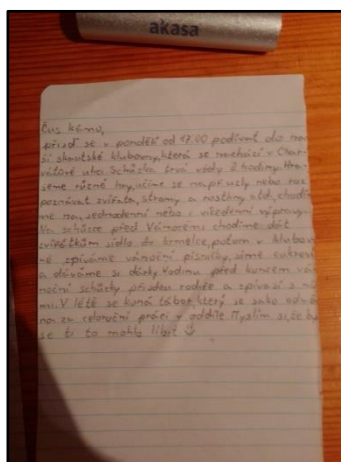 akasa
Čus kámo,
přijď se v pondělí od 17.00 podívat do na
ší skautské klubovny, která se nachází v Char
vátově ulici. Schůzka trvá vždy 2 hodiny. Hra
jeme různé hry, učíme se např. uzly nebo roz
poznávat zvířata, stromy a rostliny atd., chodí
me na jednodenní nebo i vícedenní výpravy.
Na schůzce před Vánocemi chodíme dát
zvířátkům jídlo do krmelce, potom v klubov
ně zpíváme vánoční písničky, jíme cukroví
a dáváme si dárky. Hodinu před koncem vá
noční schůzky přijdou rodiče a zpívají s ná
mi. V létě se koná tábor, který je jako odmě
na za celoroční práci v oddíle. Myslím si, že by
se ti to mohlo líbit